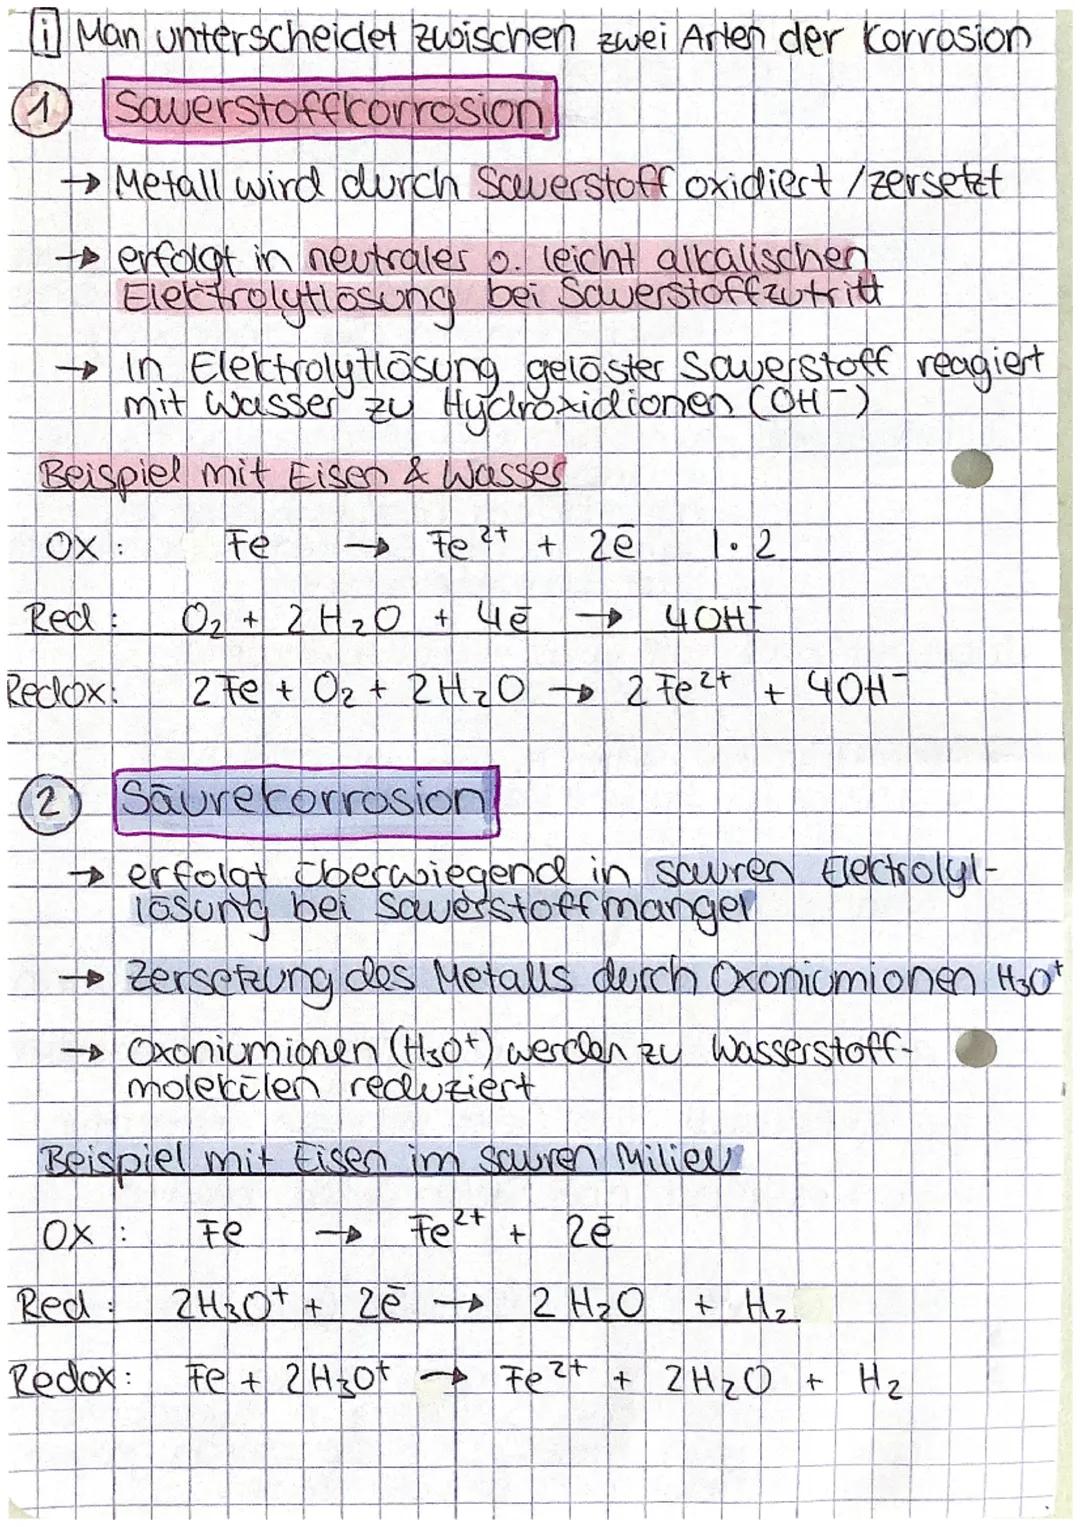 i Man unterscheidet zwischen zwei Arten der Korrosion
1 Sauerstoffkorrosion
→ Metall wird durch Sauerstoff oxidiert / zersetzt
→ erfolgt in neutraler o. leicht alkalischen
Elektrolytlösung bei Sauerstoffzutritt
→ In Elektrolytlösung gelöster Sauerstoff reagiert
mit Wasser zu Hydroxidionen (OH⁻)
Beispiel mit Eisen & Wasser
OX : Fe → Fe²⁺ + 2e⁻ |·2
Red : O₂ + 2 H₂O + 4e⁻ → 4OH⁻
Redox: 2 Fe + O₂ + 2H₂O → 2 Fe²⁺ + 4OH⁻
2 Säurekorrosion
→ erfolgt überwiegend in sauren Elektrolyl-
lösung bei Sauerstoffmangel
→ Zersetzung des Metalls durch Oxoniumionen H₃O⁺
→ Oxoniumionen (H₃O⁺) werden zu Wasserstoff-
molekülen reduziert
Beispiel mit Eisen im sauren Milieu
OX : Fe → Fe²⁺ + 2e⁻
Red : 2H₃O⁺ + 2e⁻ → 2 H₂O + H₂
Redox: Fe + 2H₃O⁺ → Fe²⁺ + 2H₂O + H₂